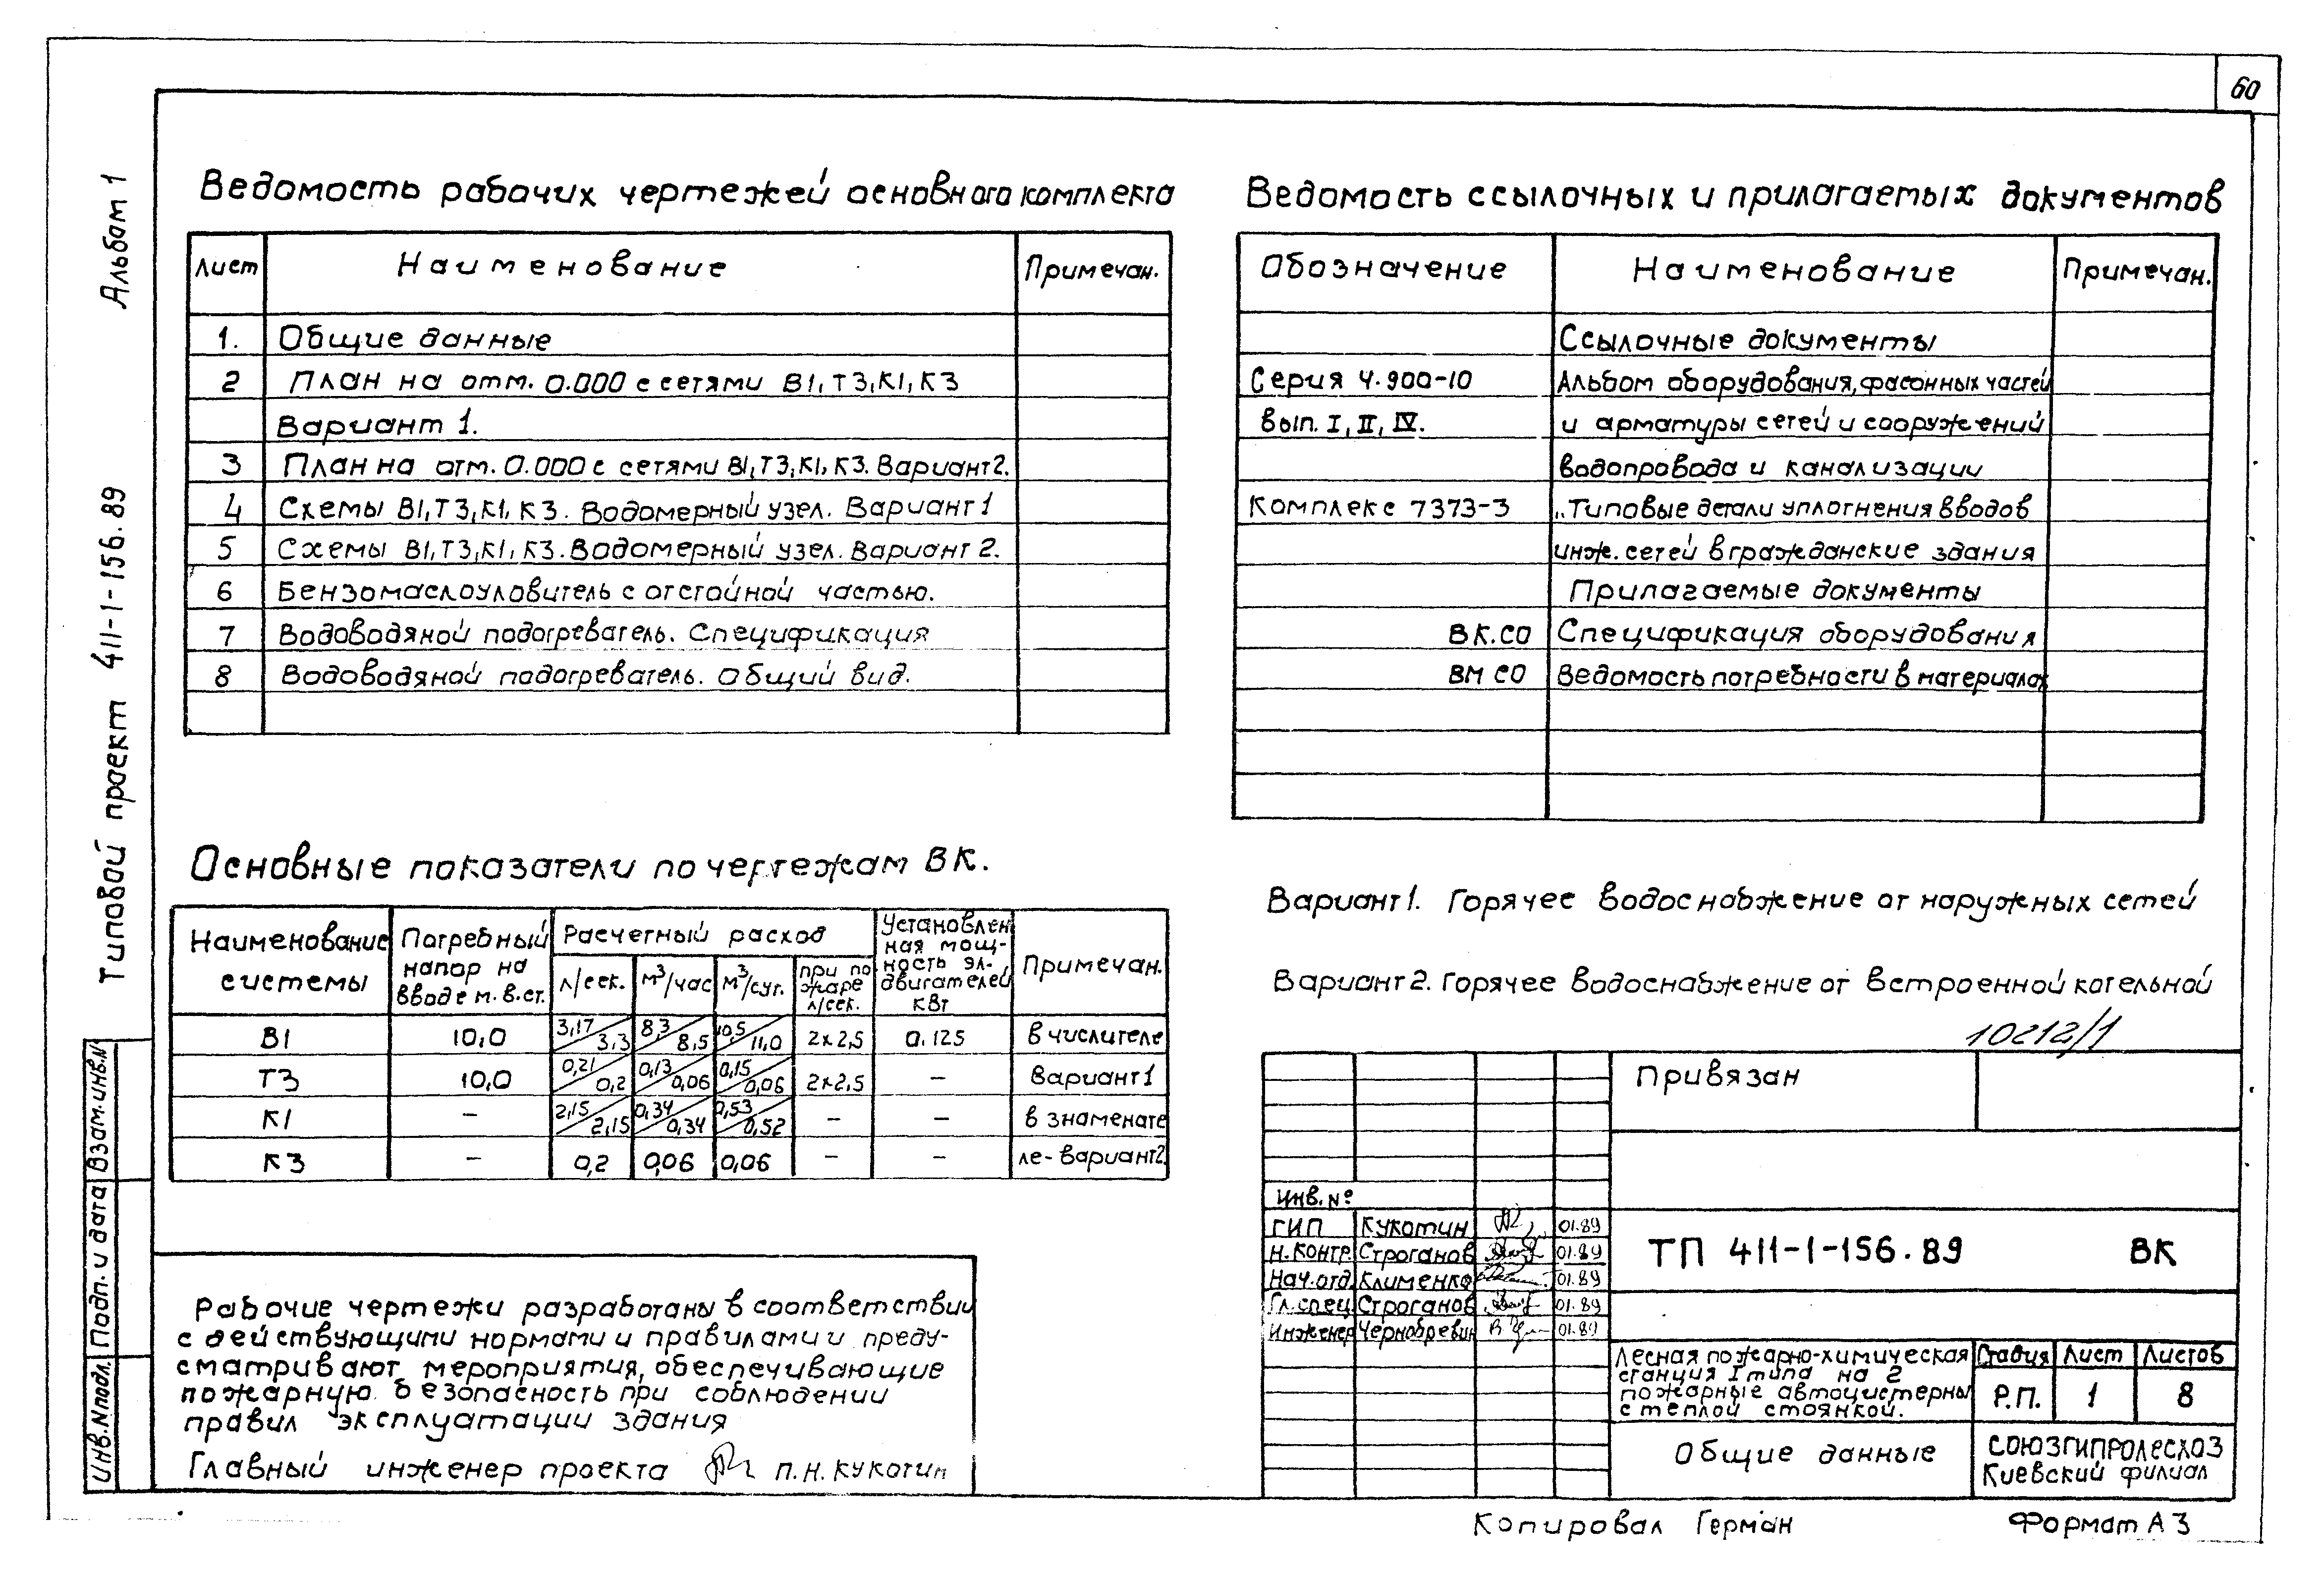 60
Альбом 1
Типовой проект 411-1-156.89
Ведомость рабочих чертежей основного комплекта
Лист Наименование Примечан.
1. Общие данные
2 План на отм. 0.000 с сетями В1, Т3, К1, К3
Вариант 1.
3 План на отм. 0.000 с сетями В1, Т3, К1, К3. Вариант 2.
4 Схемы В1, Т3, К1, К3. Водомерный узел. Вариант 1
5 Схемы В1, Т3, К1, К3. Водомерный узел. Вариант 2.
6 Бензомаслоуловитель с отстойной частью.
7 Водоводяной подогреватель. Спецификация
8 Водоводяной подогреватель. Общий вид.
Ведомость ссылочных и прилагаемых документов
Обозначение Наименование Примечан.
Ссылочные документы
Серия 4.900-10 Альбом оборудования, фасонных частей
вып. I, II, IV. и арматуры сетей и сооружений
водопровода и канализации
Комплекс 7373-3 „Типовые детали уплотнения вводов
инж. сетей в гражданские здания
Прилагаемые документы
ВК.СО Спецификация оборудования
ВМ СО Ведомость потребности в материалах
Основные показатели по чертежам ВК.
Наименование системы
Потребный напор на вводе м.в.ст.
Расчетный расход
л/сек. м³/час м³/сут. при пожаре л/сек.
Установленная мощность эл-двигателей кВт
Примечан.
В1 10,0 3,17/3,3 8,3/8,5 10,5/11,0 2х2,5 0.125 в числителе
Т3 10,0 0,21/0,2 0,13/0,06 0,15/0,06 2х2,5 – Вариант 1
К1 – 2,15/2,15 0,34/0,34 0,53/0,52 – – в знаменате
К3 – 0,2 0,06 0,06 – – ле-вариант 2.
Вариант 1. Горячее водоснабжение от наружных сетей
Вариант 2. Горячее водоснабжение от встроенной котельной
10212/1
Рабочие чертежи разработаны в соответствии
с действующими нормами и правилами и преду-
сматривают мероприятия, обеспечивающие
пожарную безопасность при соблюдении
правил эксплуатации здания
Главный инженер проекта П.Н. Кукотин
Привязан
Инв. №
ГИП Кукотин 01.89
Н.контр. Строганов 01.89
Нач.отд. Клименко 01.89
Гл.спец. Строганов 01.89
Инженер Чернобревин 01.89
ТП 411-1-156.89 ВК
Лесная пожарно-химическая
станция I типа на 2
пожарные автоцистерны
с теплой стоянкой.
Стадия Лист Листов
Р.П. 1 8
Общие данные
СОЮЗГИПРОЛЕСХОЗ
Киевский филиал
Инв.Nподл. Подп. и дата Взам.инв.N
Копировал Герман Формат А3